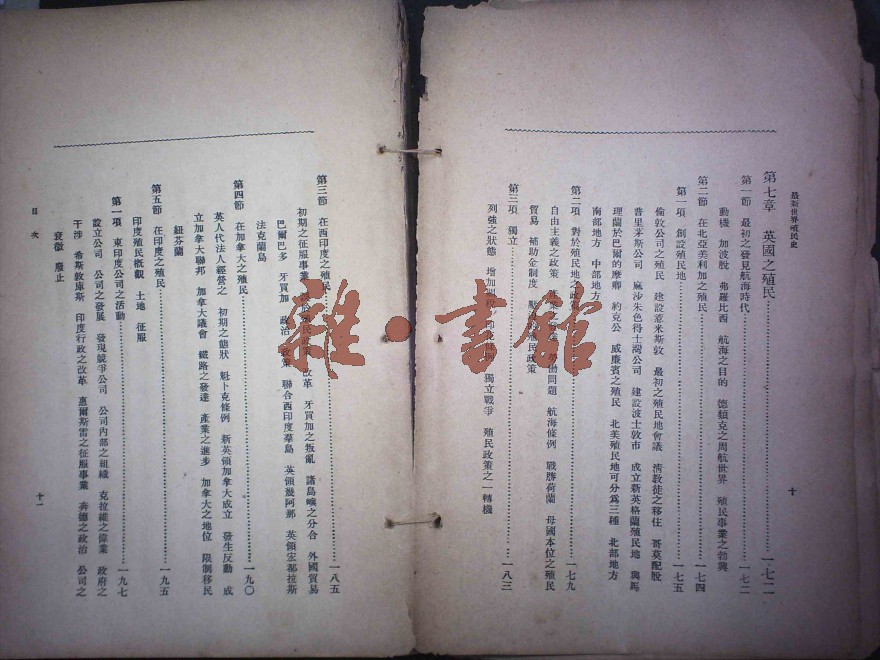 最新世界殖民史
第七章 英國之殖民 一七二
第一節 最初之發見航海時代 一七二
動機 加波脫 弗羅比西 航海之目的 德類克之周航世界 殖民事業之勃興
第二節 在北亞美利加之殖民 一七四
第一項 創設殖民地 一七五
倫敦公司之殖民 建設惹米斯敦 最初之殖民地會議 淸教徒之移住 哥莫配脫
普里茅斯公司 麻沙朱色得士灣公司 建設波士敦市 成立新英格蘭殖民地 與馬
理蘭於巴爾的摩卿 約克公 威廉賓之殖民 北美殖民地可分爲三種 北部地方
南部地方 中部地方
第二項 對於殖民地之政 一七九
自由主義之政策 勞働問題 航海條例 戰勝荷蘭 母國本位之殖民
貿易 補助金制度 殖民政策
第三項 獨立 一八三
列強之狀態 增加 獨立戰爭 殖民政策之一轉機
十
第三節 在西印度之殖民 一八五
初期之征服事業 改革 牙買加之叛亂 諸島嶼之分合 外國貿易
巴爾巴多 牙買加 政治 政策 聯合西印度羣島 英領幾阿那 英領宏都拉斯
法克蘭島
第四節 在加拿大之殖民 一九〇
英人代法人經營之 初期之態狀 魁卜克條例 新英領加拿大成立 發生反動 成
立加拿大聯邦 加拿大議會 鐵路之發達 產業之進步 加拿大之地位 限制移民
紐芬蘭
第五節 在印度之殖民 一九五
印度殖民槪觀 土地 征服
第一項 東印度公司之活動 一九七
設立公司 公司之發展 發現競爭公司 公司內部之組織 克拉維之偉業 政府之
干涉 希斯敦庫斯 印度行政之改革 惠爾斯雷之征服事業 奔德之政治 公司之
衰微 廢止
目次
十一
雜·書館